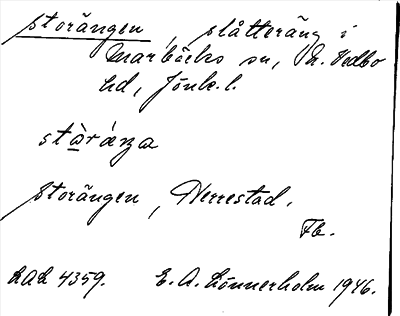 Storängen, slåtteräng i
Marbäcks sn, N. Vedbo
hd, Jönk. l.
stàráŋa
Storängen, Herrestad.
Fb.
LAL 4359. E. A. Lönnerholm 1946.